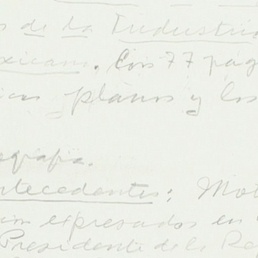 de la Industria
xicana. Con 77 pág
planos y los
grafía.
ntecedentes: Mot
expresados en
Presidente de la Re